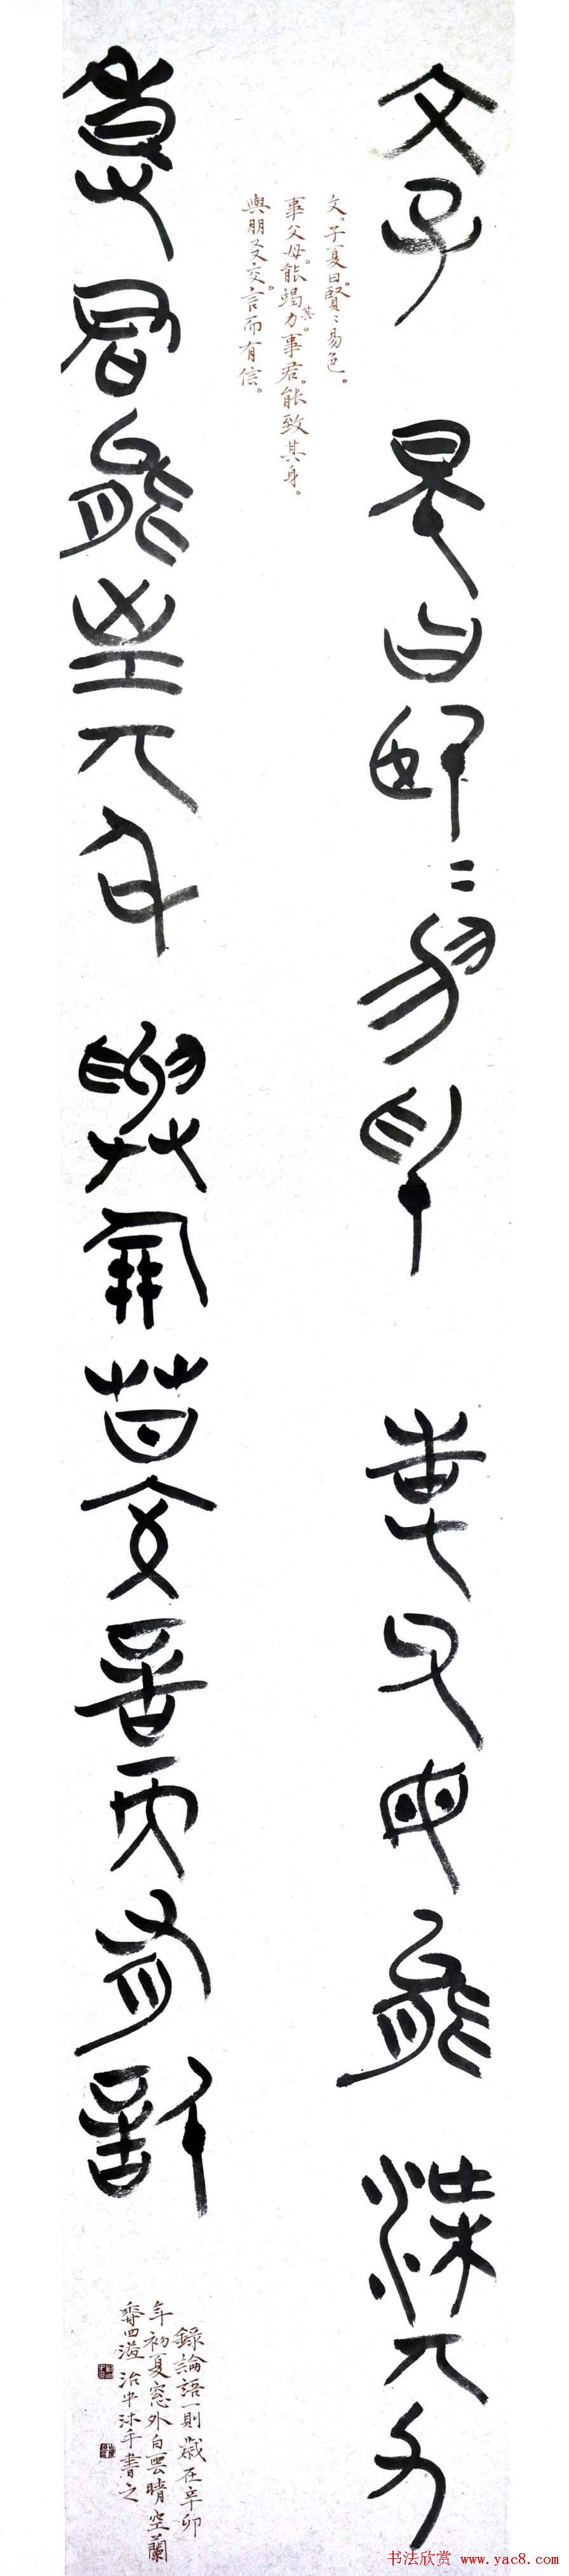 文子夏曰臤=易色事父母能渫亓力
事君能至亓身與朋友交言而有信
文。子夏曰。賢=易色。
事父母。能竭其力。事君。能致其身。
與朋友交。言而有信。
錄論語一則歲在辛卯
年初夏窓外白雲晴空蘭
香四溢治中沐手書之
书法欣赏 www.yac8.com